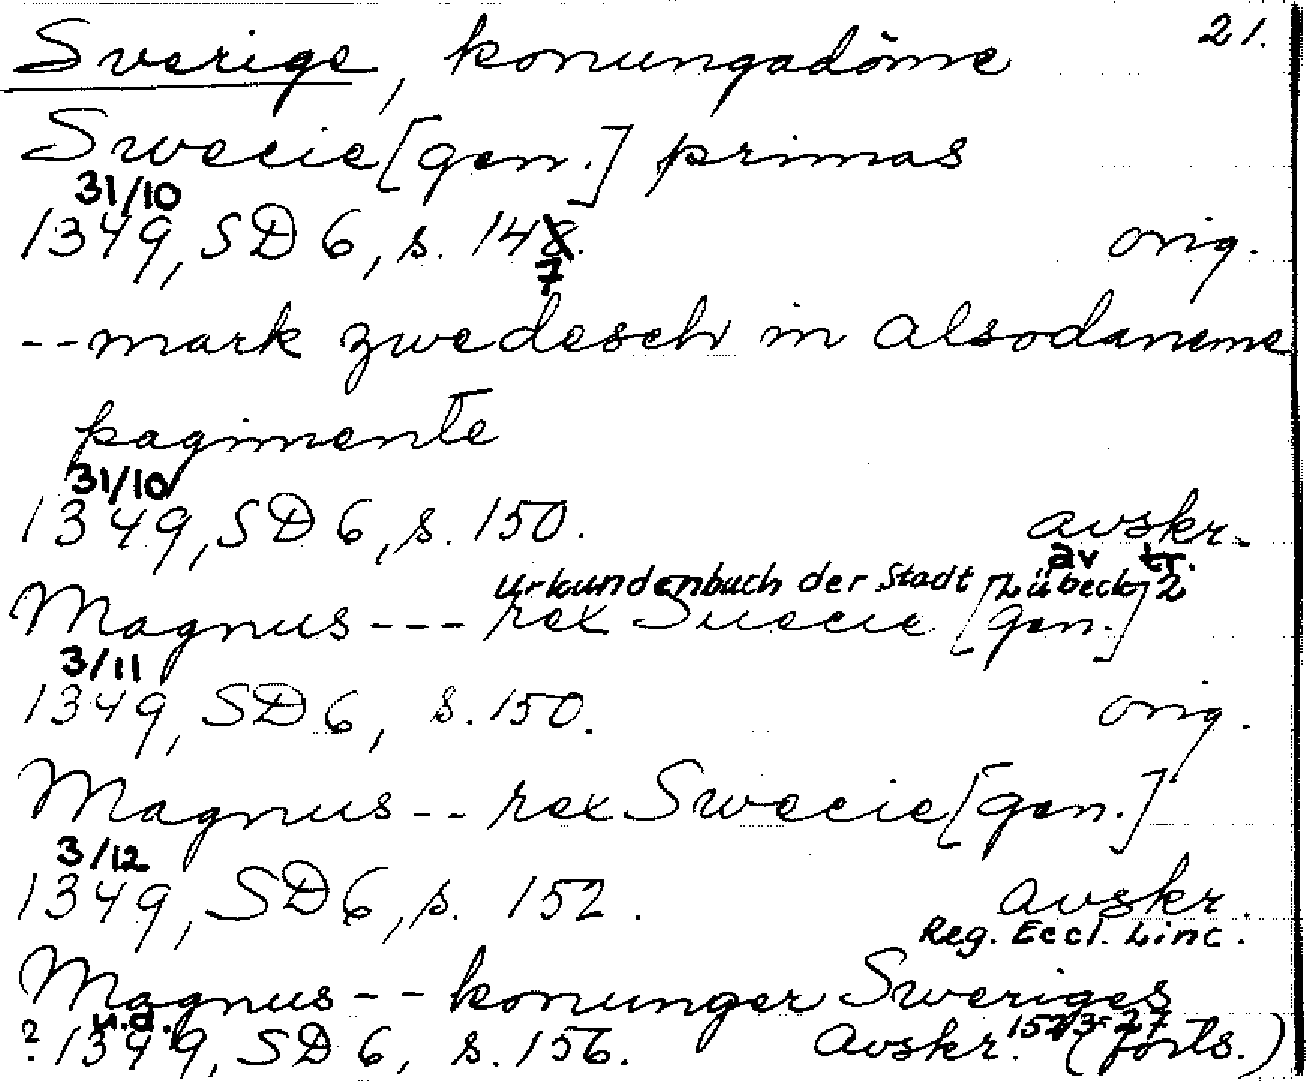 Sverige, konungadöme 21.
Swecie [gen.] primas
31/10
1349, SD 6, s. 148. orig.
7
--mark zwedesch in alsodaneme
pagimente
31/10
1349, SD 6, s. 150. avskr.
av tr.
Urkundenbuch der Stadt Lübeck 2
Magnus --- rex Suecie [gen.]
3/11
1349, SD 6, s. 150. orig.
Magnus -- rex Swecie [gen.]
3/12
1349, SD 6, s. 152. avskr.
Reg. Eccl. Linc.
Magnus -- konunger Sweriges
u.d. 1523-27
? 1349, SD 6, s. 156. Avskr. (forts.)